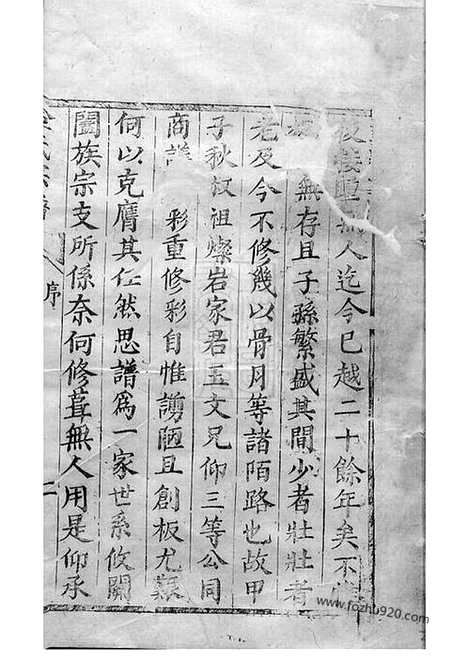 後裝重無人迄今已越二十餘年矣不
無存且子孫繁盛其間少者壯壯者
老及今不修幾以骨月等諸陌路也故甲
子秋叔祖燦岩家君玉文兄仰三等公同
商議 彩重修彩自惟謭陋且創板尤艱
何以克膺其任然思譜爲一家世系攸關
闔族宗支所係奈何修葺無人用是仰承
氏宗譜 序 二
www.fozhu920.com